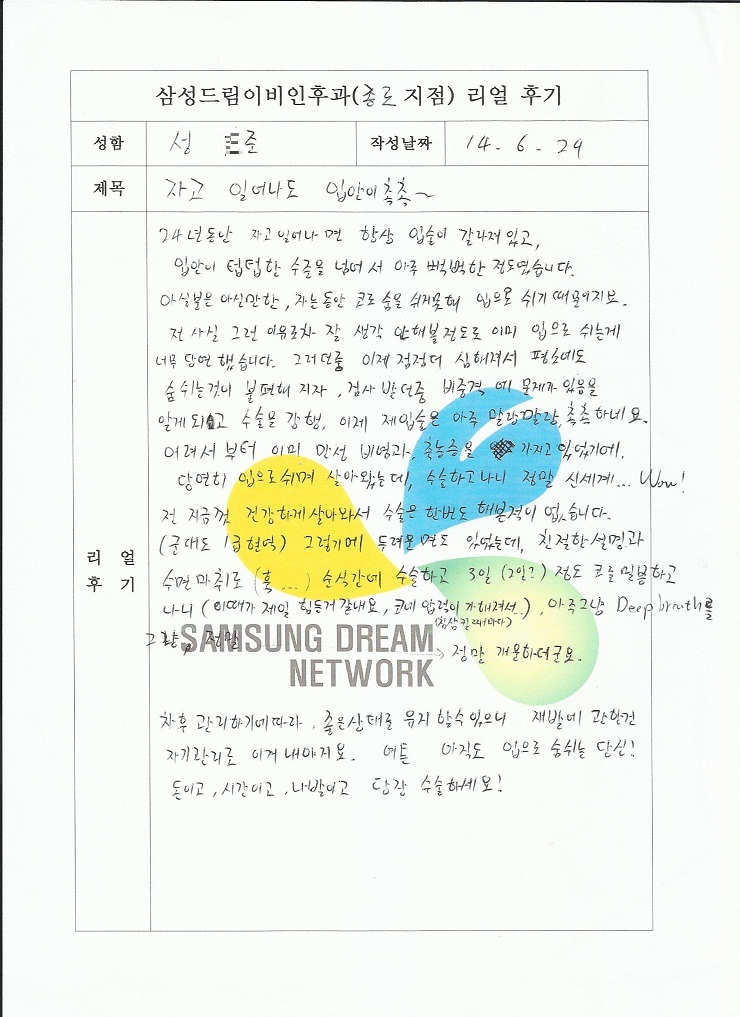 삼성드림이비인후과(종로 지점) 리얼 후기
성함 성 준 작성날짜 14. 6. 29
제목 자고 일어나도 입안이 촉촉~
리얼 후기
24년동안 자고 일어나면 항상 입술이 갈라져 있고,
입안이 텁텁한 수준을 넘어서 아주 뻑뻑한 정도였습니다.
아실분은 아실만한, 자는동안 코로 숨을 쉬지못해 입으로 쉬기 때문이지요.
전 사실 그런 이유로차 잘 생각 안해볼정도로 이미 입으로 쉬는게
너무 당연했습니다. 그러던중 이제 점점더 심해져서 평소에도
숨쉬는것이 불편해 지자, 검사 받던중 비중격에 문제가 있음을
알게 되고 수술을 강행, 이제 제입술은 아주 말랑말랑, 촉촉하네요.
어려서부터 이미 만성 비염과 축농증을 가지고 있었기에,
당연히 입으로쉬며 살아왔는데, 수술하고나니 정말 신세계... Wow!
전 지금껏 건강하게살아와서 수술은 한번도 해본적이 없습니다.
(군대도 1급현역) 그렇기에 두려운면도 있었는데, 친절한설명과
수면마취로 (훅...) 순식간에 수술하고 3일 (2일?) 정도 코를 밀봉하고
나니 (이때가 제일 힘든거 같애요, 코에 압력이 가해져서..), 아주그냥 Deep breath를
(침삼킬때마다)
그냥, 정말
→ 정말 개운하더군요.
SAMSUNG DREAM
NETWORK
차후 관리하기에따라, 좋은상태를 유지 할수있으니 재발에 관한건
자기관리로 이겨 내야지요. 여튼 아직도 입으로 숨쉬는 당신!
돈이고, 시간이고, 나발이고 당장 수술하세요!